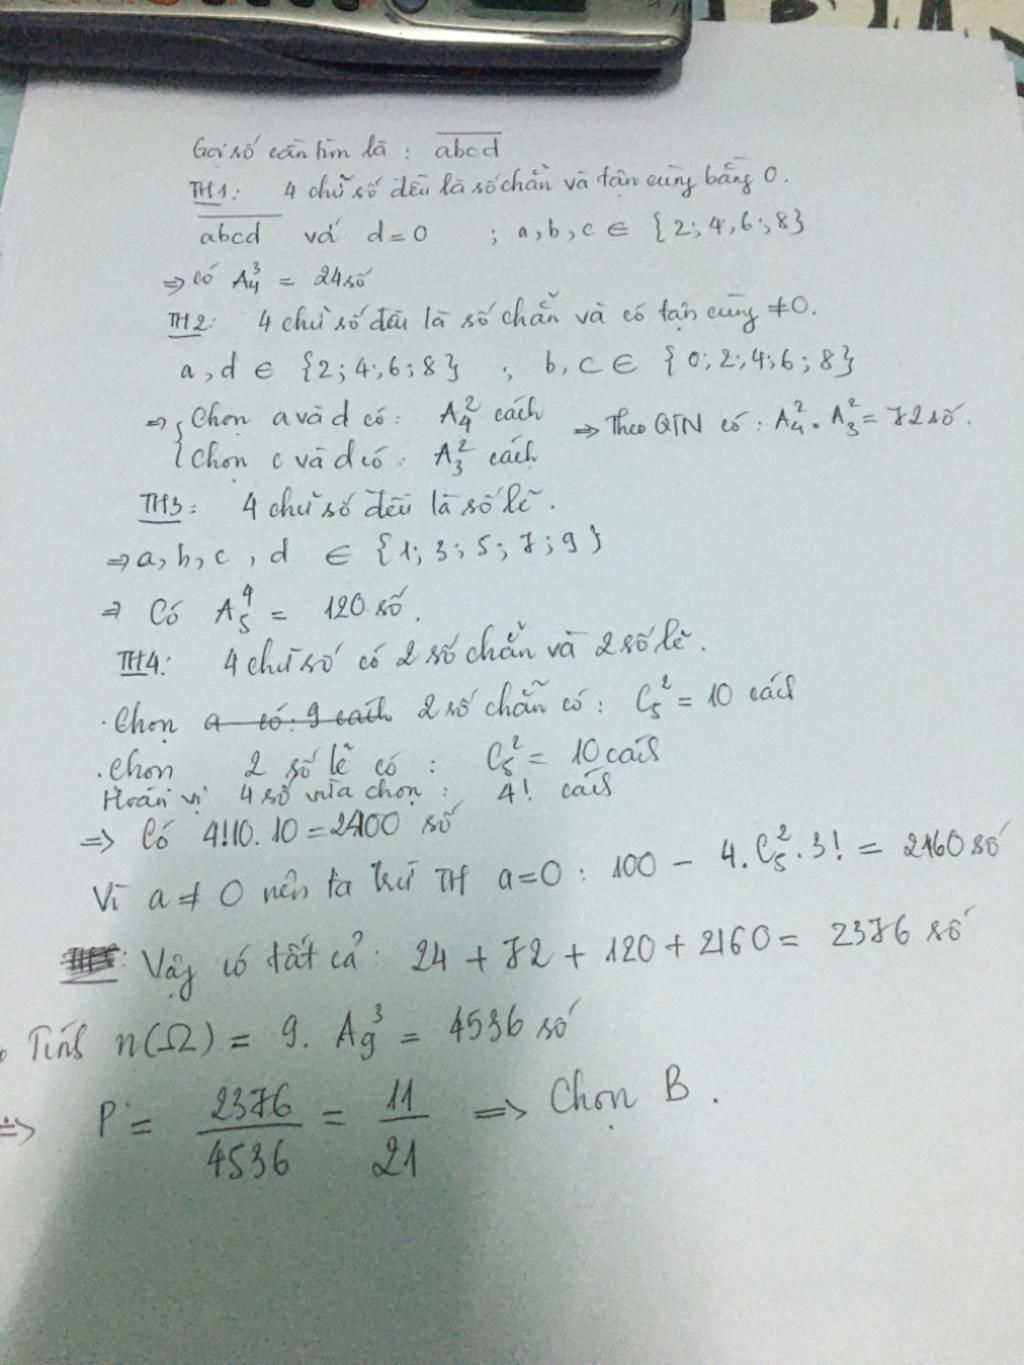 Gọi số cần tìm là : abcd
TH1: 4 chữ số đều là số chẵn và tận cùng bằng 0.
abcd với d=0 ; a,b,c ∈ {2;4,6;8}
⇒ có A₄³ = 24 số
TH2: 4 chữ số đều là số chẵn và có tận cùng ≠0.
a,d ∈ {2;4;6;8} , b,c ∈ {0;2;4;6;8}
⇒ { Chọn a và d có: A₄² cách ⇒ Theo QTN có: A₄² . A₃² = 72 số.
Chọn c và d có: A₃² cách
TH3: 4 chữ số đều là số lẻ.
⇒ a,b,c,d ∈ {1;3;5;7;9}
⇒ Có A₅⁴ = 120 số.
TH4: 4 chữ số có 2 số chẵn và 2 số lẻ.
. Chọn a có: 9 cách 2 số chẵn có: C₅² = 10 cách
. chọn 2 số lẻ có : C₅² = 10 cách
Hoán vị 4 số vừa chọn : 4! cách
⇒ Có 4!10.10 = 2400 số
Vì a ≠ 0 nên ta trừ TH a=0 : 100 - 4.C₅².3! = 2160 số
Vậy có tất cả: 24 + 72 + 120 + 2160 = 2376 số
Tính n(Ω) = 9. A₉³ = 4536 số
⇒ P = 2376/4536 = 11/21 ⇒ Chọn B.